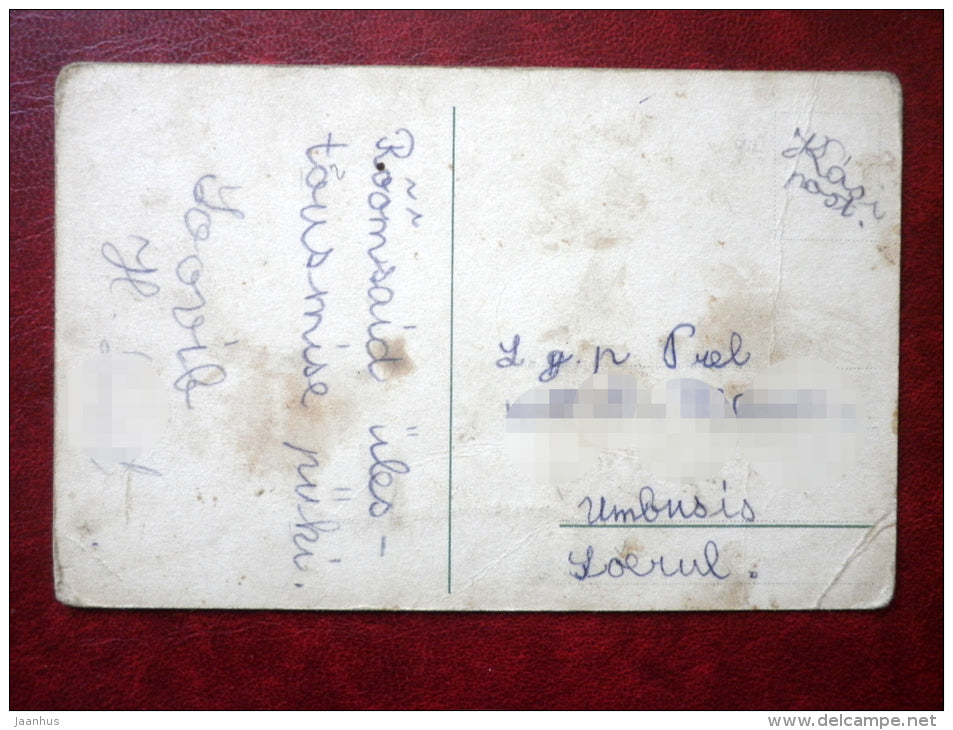 Rõõmsaid üles-
tõusmise pühi.
Soovib
H.
Käsi
post.
L g. p Prel
Umbusis
Loerul.
jaanhus
www.delcampe.net